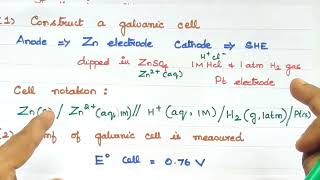 1) Construct a galvanic cell
Anode => Zn electrode Cathode => SHE
H⁺Cl⁻
dipped in ZnSO₄ 1M Hcl & 1 atm H₂ gas
Zn²⁺(aq) Pt electrode
Cell notation :
Zn( / Zn²⁺(aq,1M) // H⁺(aq, 1M) / H₂(g,1atm) / Pt(s)
(2) of galvanic cell is measured
E° cell = 0.76 V